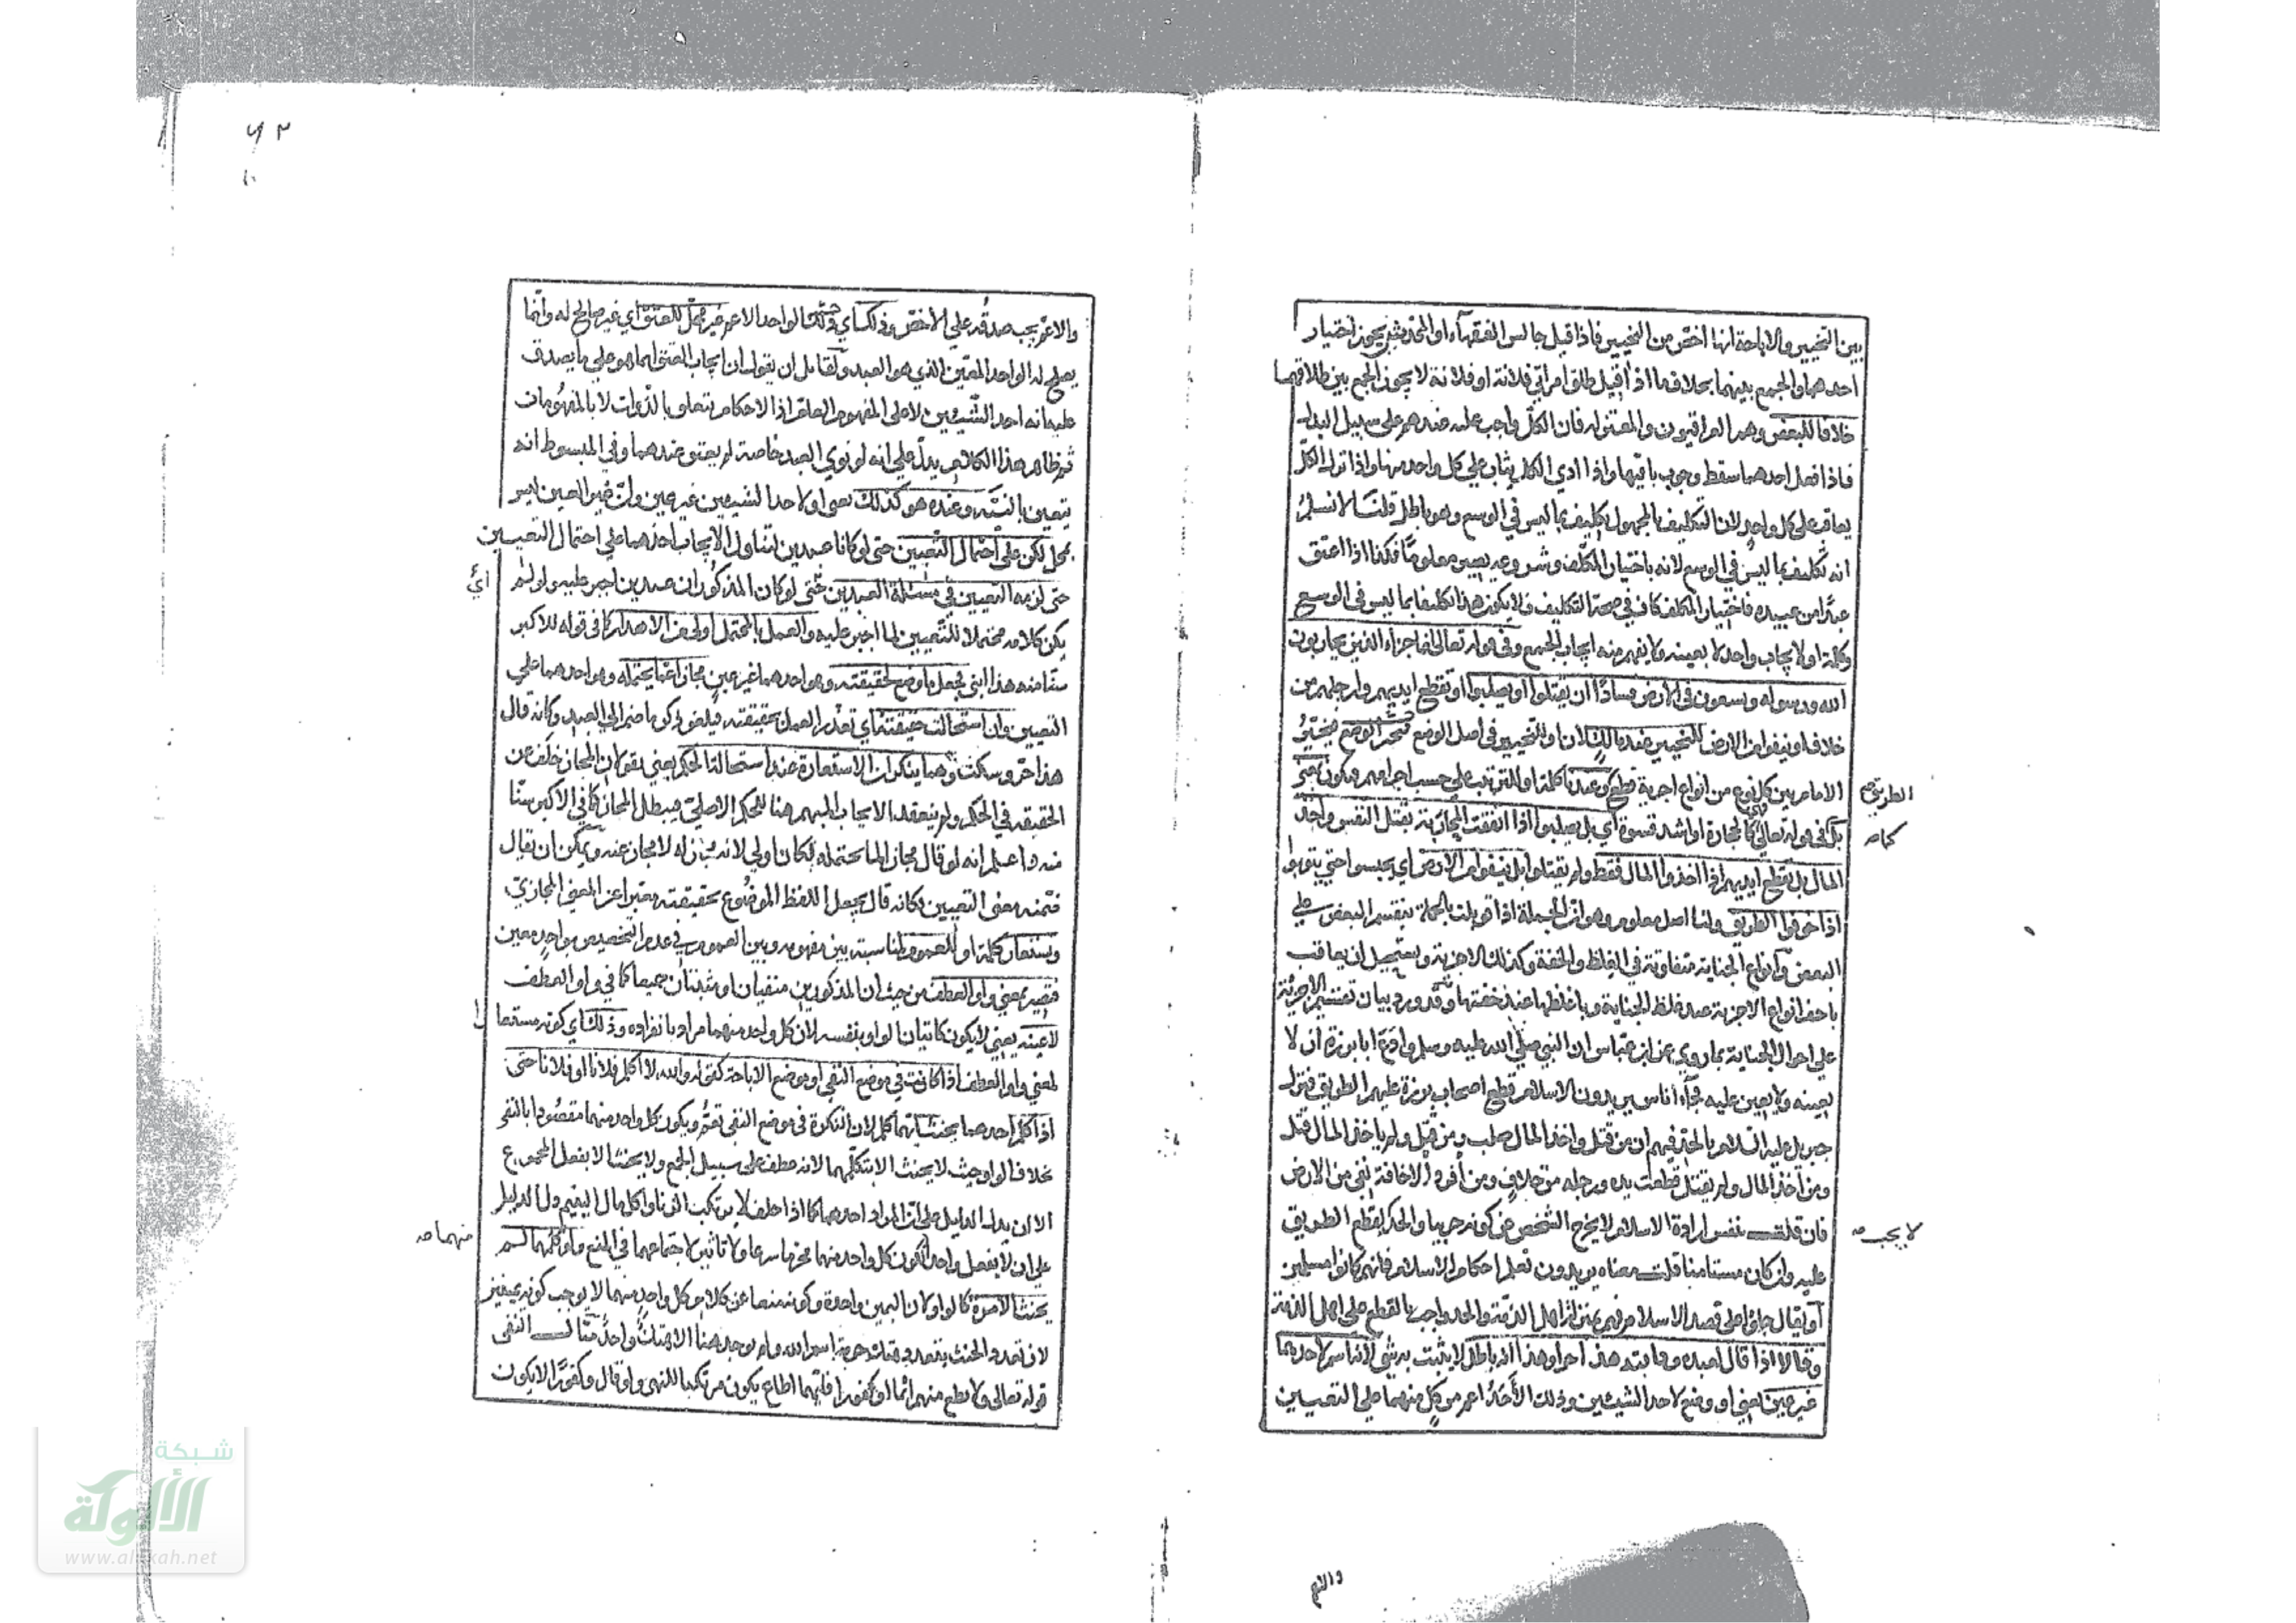 بين التخيير والاباحة انها اخص من التخيير فاذا قيل جالس الفقهاء او المحدثين يجوز اختيار
احدهما والجمع بينهما بخلاف ما اذا قيل طلق امرأتي فلانة او فلانة لا يجوز الجمع بين طلاقهما
خلافا للبعض وهم العراقيون والمعتزلة فان الكل واجب عليه عندهم على سبيل البدل
فاذا فعل احدهما سقط وجوب باقيها واذا ادي الكل يثاب علي كل واحد منها واذا ترك الكل
يعاقب على كل واحد لان التكليف بالمجهول تكليف بما ليس في الوسع وهو باطل قلنا لا نسلم
انه تكليف بما ليس في الوسع لانه باختيار المكلف وشروعه يصير معلوما فكذا اذا اعتق
عبدا من عبيده فاختيار المكلف كاف في صحة التكليف ولا يكون هذا تكليفا بما ليس في الوسع
وكلمة او لايجاب واحد لا بعينه ولا يفهم منه ايجاب الجمع وفي قوله تعالى انما جزاء الذين يحاربون
الله ورسوله ويسعون في الارض فسادا ان يقتلوا او يصلبوا او تقطع ايديهم وارجلهم من
خلاف او ينفوا من الارض للتخيير عند مالك لان او للتخيير في اصل الوضع فيتخير
الامام بين كل نوع من انواع اجزية قطع وعندنا كلمة او للترتيب علي حسب اجرامهم فيكون بمعنى
الطريق صح
بل في قوله تعالى كالحجارة او اشد قسوة اي بل يصلبوا اذا اتفقت المحاربة بقتل النفس واخذ
كما صح
المال بل تقطع ايديهم اذا اخذوا المال فقط ولم يقتلوا بل ينفوا من الارض اي يحبسوا حتي يتوبوا
اذا خوفوا الطريق ولنا اصل معلوم وهو ان الجملة اذا قوبلت بالجملة ينقسم البعض علي
البعض وانواع الجناية متفاوتة في الغلظ والخفة وكذلك الاجزية ويستحيل ان يعاقب
باخف انواع الاجزية عند غلظ الجناية وباغلظها عند خفتها وقد ورد بيان تقسيم الاجزية
على احوال الجناية بما روي عن ابن عباس ان النبي صلي الله عليه وسلم وادع ابا برزة ان لا
يعينه ولا يعين عليه فجاء اناس يريدون الاسلام قطع اصحاب برزة عليهم الطريق فنزل
جبريل عليه السلام بالحد فيهم ان من قتل واخذ المال صلب ومن قتل ولم ياخذ المال قتل
ومن اخذ المال ولم يقتل قطعت يده ورجله من خلاف ومن افرد الاخافة نفي من الارض
فان قلت بنفس ارادة الاسلام لا يخرج الشخص من كونه حربيا والحد بقطع الطريق
لا يجب صح
عليه وان كان مستامنا قلت معناه يريدون تعلم احكام الاسلام فانهم كانوا مسلمين
او يقال جاؤا على قصد الاسلام فهم بمنزلة اهل الذمة والحد واجب بالقطع على اهل الذمة
وقالا اذا قال لعبده ودابته هذا حر او هذا انه باطل لا يثبت به شئ لانه اسم لاحدهما
غير عين يعني او وضع لاحد الشيئين وذلك الاحد اعم من كل منهما على التعيين
والاعم يجب صدقه على الاخص وذلك اي ذلك الواحد الاعم غير محل للعتق اي غير صالح له وانما
يصلح له الواحد المعين الذي هو العبد ولقائل ان يقول ان ايجاب العتق انما هو على ما يصدق
عليه انه احد الشيئين لا على المفهوم العام اذ الاحكام يتعلق بالذوات لا بالمفهومات
ثم ظاهر هذا الكلام يدل علي انه لو نوي العبد خاصة لم يعتق عندهما وفي المبسوط انه
يتعين بالنية وعنده هو كذلك يعني او لاحد الشيئين غير عين وان غير العين ليس
بمحل لكن على احتمال التعيين حتى لو كانا عبدين تناول الايجاب احدهما على احتمال التعيين
حتى لزمه التعيين في مسئلة العبدين حتى لو كان المذكوران عبدين اجبر عليه ولو لم
اي
يكن كلامه محتملا للتعيين لما اجبر عليه والعمل بالمحتمل اولى من الاهدار كما في قوله للاكبر
سنا منه هذا ابني فجعل ما وضع لحقيقته وهو احدهما غير عين مجازا عما يحتمله وهو احدهما على
التعيين وان استحالت حقيقته اي تعذر العمل بحقيقته فيلغو ذكر ما ضم الى العبد وكانه قال
هذا حر وسكت وهما ينكران الاستعارة عند استحالة الحكم يعني يقولان المجاز خلف عن
الحقيقة في الحكم ولم ينعقد الايجاب المبهم هنا للحكم الاصلي فيبطل المجاز كما في الاكبر سنا
منه واعلم انه لو قال مجازا لما يحتمله لكان اولي لانه مجاز له لا مجاز عنه ويمكن ان يقال
ضمنه معنى التعيين فكانه قال يجعل اللفظ الموضوع بحقيقته معتبرا عن المعنى المجازي
ويستعار كلمة او للعموم لمناسبة بين مفهومه وبين العموم في عدم التخصيص بواحد معين
فتصير بمعنى واو العطف من حيث ان المذكورين منفيان او مثبتان جميعا كما في واو العطف
لا عينه يعني لا يكون كاتيان الواو بنفسه لان كل واحد منهما مراد بانفراده وذلك اي كونه مستعا
را
لمعنى واو العطف اذا كانت في موضع النفي او موضع الاباحة كقوله والله لا اكلم فلانا او فلانا حتى
اذا كلم احدهما يحنث لان النكرة في موضع النفي تعم ويكون كل واحد منهما مقصودا بالنفي
بخلاف الواو حيث لا يحنث الا بتكلمهما لانه عطف على سبيل الجمع ولا يحنث الا بفعل المجموع
الا ان يدل الدليل على ان المراد احدهما كما اذا حلف لا يرتكب الزنا واكل مال اليتيم دل الدليل
على ان لا يفعل واحدا لكون كل واحد منهما محرما شرعا ولا تاثير لاجتماعهما في المنع ولو كلمهما لم
منهما صح
يحنث الا مرة كالواو لان اليمين واحدة وكونه منعا عن كلام كل واحد منهما لا يوجب كونه يمينين
لان تعدد الحنث بتعدد هتك حرمة اسم الله ولم يوجد هنا الا هتك واحد مثال النفي
قوله تعالى ولا تطع منهم اثما او كفورا فايهما اطاع يكون مرتكبا للنهي ولو قال وكفورا لا يكون
والاعم
شبكة
الألوكة
www.alukah.net